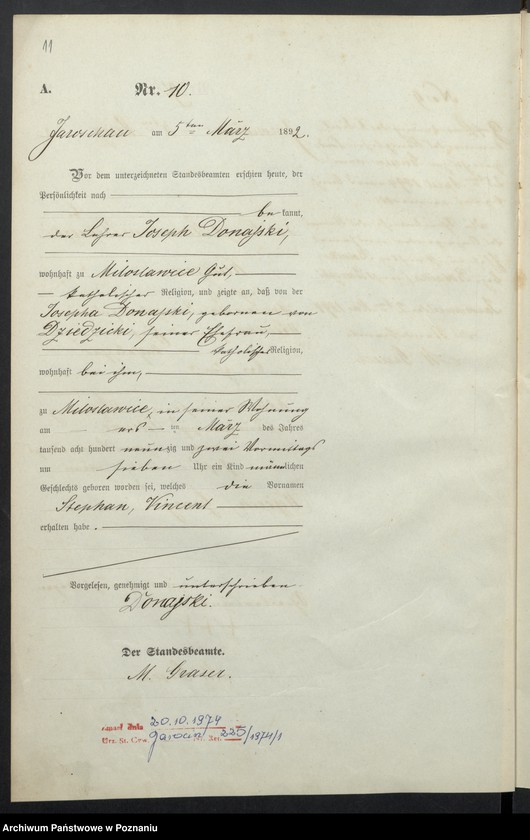 11
A. Nr. 10.
Jaroschau am 5ten März 1892.
Vor dem unterzeichneten Standesbeamten erschien heute, der
Persönlichkeit nach
bekannt,
der Lehrer Joseph Donajski,
wohnhaft zu Miloslawice Gut,
katholischer Religion, und zeigte an, daß von der
Josepha Donajski, geborenen von
Dziedzicki, seiner Ehefrau,
katholischer Religion,
wohnhaft bei ihm,
zu Miloslawice, in seiner Wohnung
am ersten März des Jahres
tausend acht hundert neunzig und zwei Vormittags
um sieben Uhr ein Kind männlichen
Geschlechts geboren worden sei, welches die Vornamen
Stephan, Vincent
erhalten habe.
Vorgelesen, genehmigt und unterschrieben.
Donajski.
Der Standesbeamte.
M. Graser.
20.10.1974
Urz. St. Cyw. 225/1974/1
Archiwum Państwowe w Poznaniu